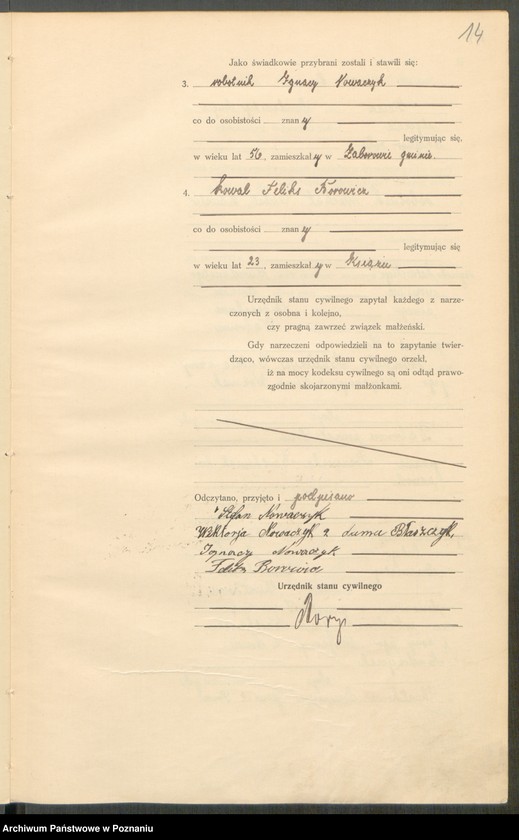 14
Jako świadkowie przybrani zostali i stawili się:
3. robotnik Ignacy Nowaczyk
co do osobistości znany
legitymując się,
w wieku lat 56, zamieszkały w Zaborowie gminie.
4. kowal Feliks Borowicz
co do osobistości znany
legitymując się
w wieku lat 23, zamieszkały w Książu
Urzędnik stanu cywilnego zapytał każdego z narze-
czonych z osobna i kolejno,
czy pragną zawrzeć związek małżeński.
Gdy narzeczeni odpowiedzieli na to zapytanie twier-
dząco, wówczas urzędnik stanu cywilnego orzekł,
iż na mocy kodeksu cywilnego są oni odtąd prawo-
zgodnie skojarzonymi małżonkami.
Odczytano, przyjęto i podpisano
Stefan Nowaczyk
Wiktorja Nowaczyk z domu Błaszczyk,
Ignacy Nowaczyk
Feliks Borowicz
Urzędnik stanu cywilnego
Archiwum Państwowe w Poznaniu